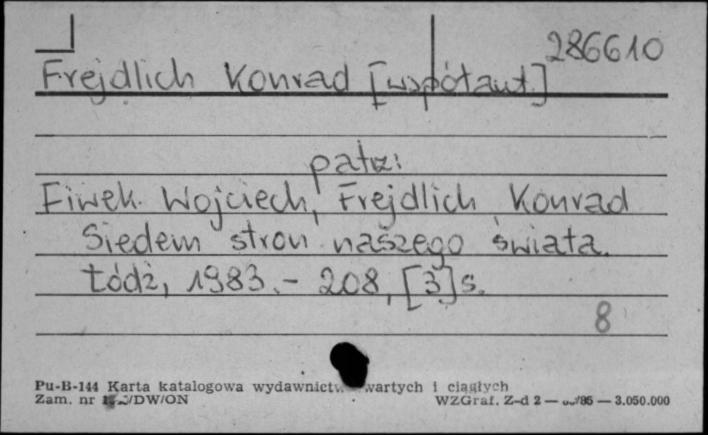 286610
Frejdlich Konrad [współaut.]
patrz:
Fiwek Wojciech, Frejdlich Konrad
Siedem stron naszego świata.
Łódź, 1983. - 208, [3] s.
8
Pu-B-144 Karta katalogowa wydawnictw zwartych i ciągłych
Zam. nr /DW/ON WZGraf. Z-d 2 — /85 — 3.050.000